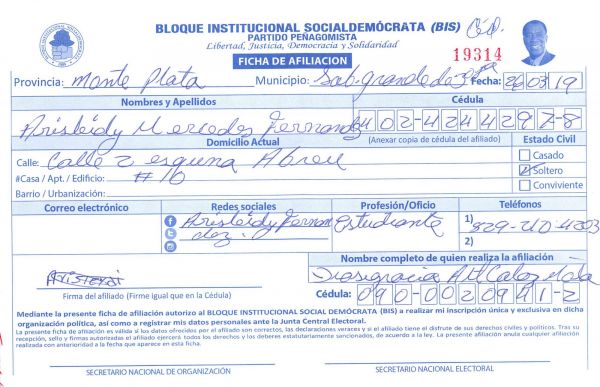 BLOQUE INSTITUCIONAL SOCIALDEMÓCRATA (BIS)
PARTIDO PEÑAGOMISTA
Libertad, Justicia, Democracia y Solidaridad
FICHA DE AFILIACION
19314
Provincia: Monte Plata Municipio: Sab. grande de Fecha: 26 03 19
Nombres y Apellidos Cédula
Arisleidy Mercedes Fernandez 402-4244297-8
Domicilio Actual (Anexar copia de cédula del afiliado) Estado Civil
Calle: Calle 2 esquina Abreu Casado
#Casa / Apt. / Edificio: #10 Soltero
Barrio / Urbanización: Conviviente
Correo electrónico Redes sociales Profesión/Oficio Teléfonos
Arisleidy Fernan Estudiante 1)
dez. 829-210-4203
2)
Nombre completo de quien realiza la afiliación
Firma del afiliado (Firme igual que en la Cédula) Cédula: 090-0020941-2
Mediante la presente ficha de afiliación autorizo al BLOQUE INSTITUCIONAL SOCIAL DEMÓCRATA (BIS) a realizar mi inscripción única y exclusiva en dicha
organización política, así como a registrar mis datos personales ante la Junta Central Electoral.
La presente ficha de afiliación es válida si los datos del afiliado son correctos, las declaraciones veraces y si el afiliado tiene el disfrute de sus derechos civiles y políticos. Tras su
recepción, sello y firmas autorizadas el afiliado ejercerá todos los derechos y los deberes estatutariamente sancionados, de acuerdo a la ley. La presente afiliación anula cualquier afiliación
realizada con anterioridad a la fecha que aparece en esta ficha.
SECRETARIO NACIONAL DE ORGANIZACIÓN SECRETARIO NACIONAL ELECTORAL